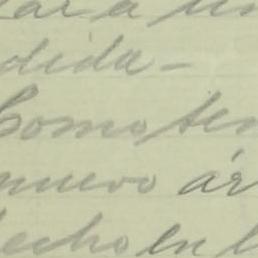 ara un
dida-
Como ten
nuevo ár
echo en l